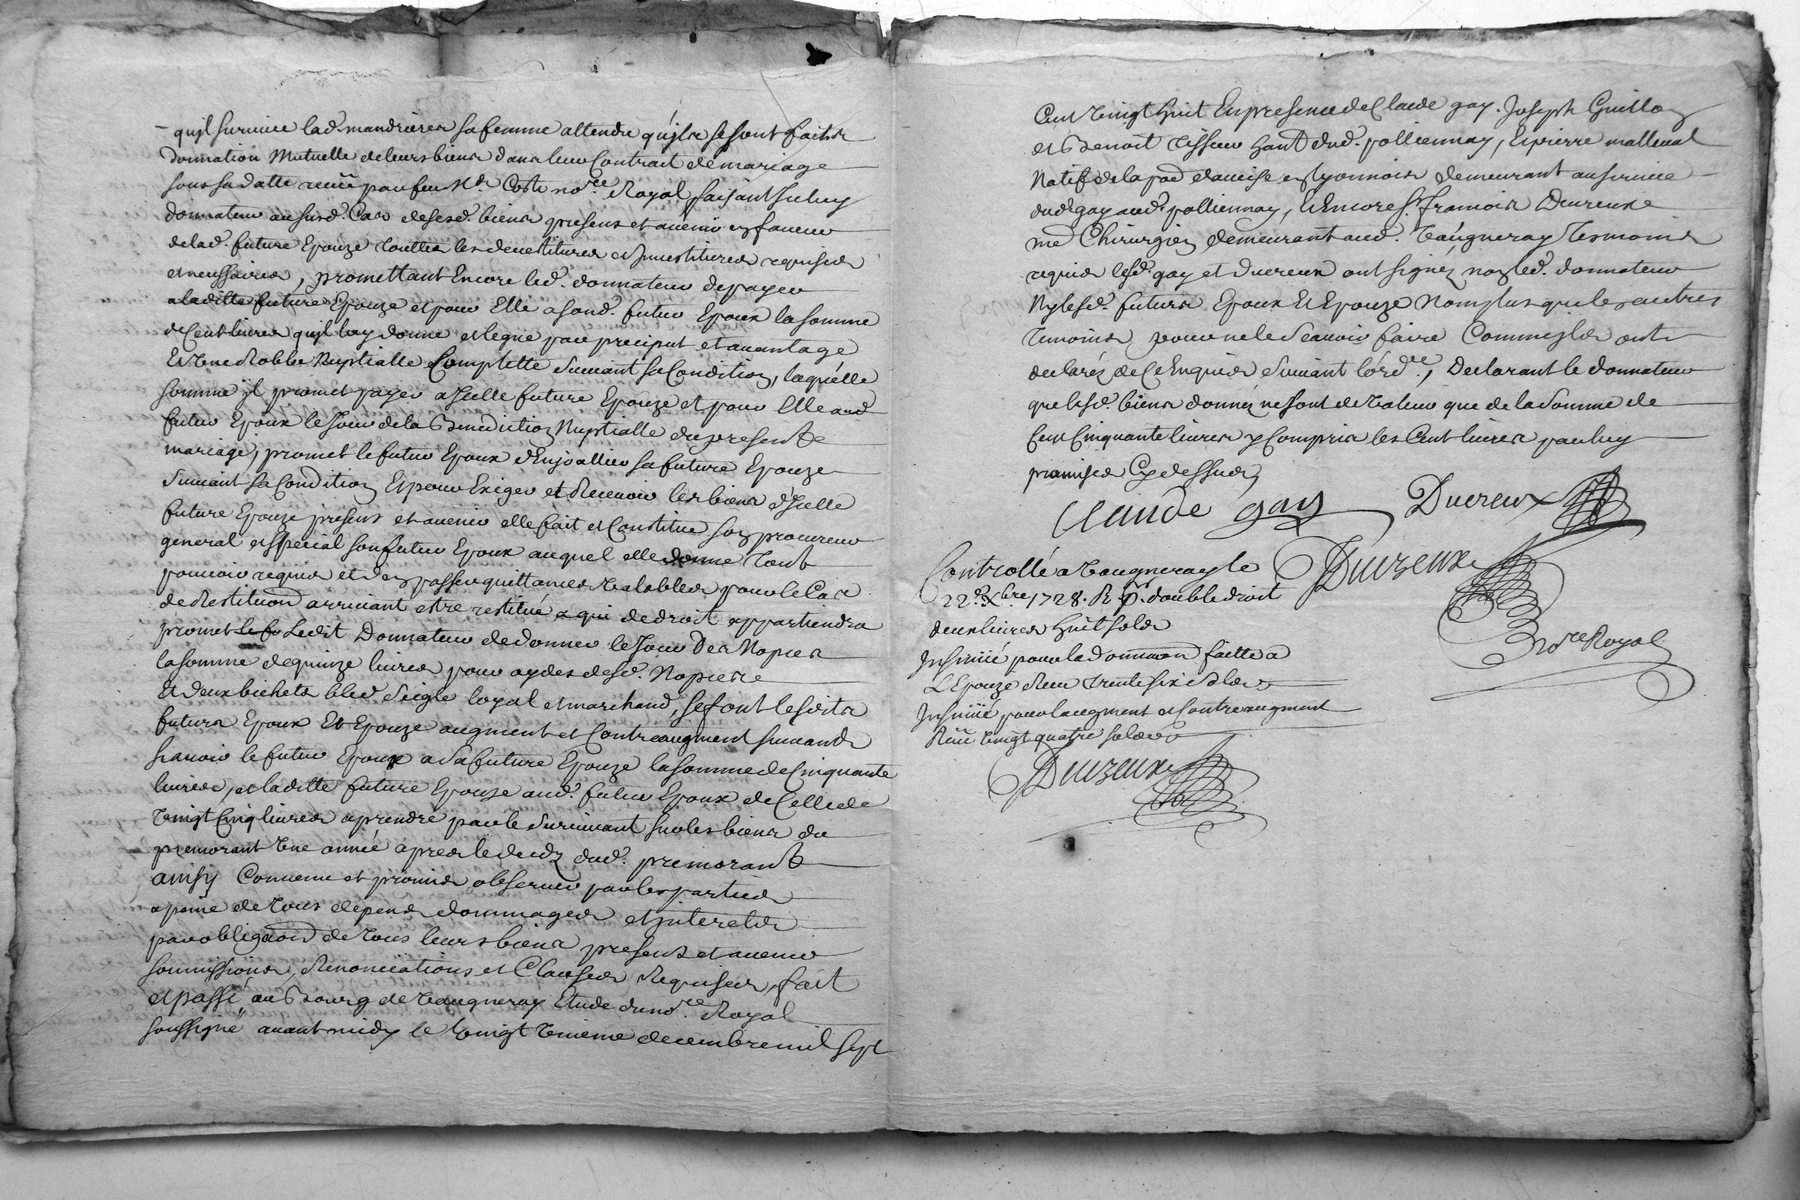 qu'jl survive lad. mandrieres sa femme attendu qu'jls se sont faits
donnation Mutuelle de leurs biens dans leur Contrait de mariage
sous sa datte receu par feu Me. Coste no.re Royal faisant jceluy
donnateur au susd. Cas de sesd. biens presens et avenir en faveur
de lad. future Epouze touttes les devestitures et Jnvestitures requises
et necessaires, promettant Encore led. donnateur de payer
a laditte future Epouze et pour Elle a sond. futur Epoux la somme
de Cent livres qu'jl luy donne et legue par preciput et avantage
Et Une Robbe Nuptialle Complette Suivant sa Condition, laquelle
somme jl promet payer a Jcelle future Epouze et pour Elle aud.
futur Epoux le Jour de la Benediction Nuptialle du present
mariage, promet le futur Epoux d'Enjoallier sa future Epouze
Suivant sa Condition Et pour Exiger et Recevoir les biens d'Jcelle
future Epouze presens et avenir elle fait et Constitue son procureur
general et special son futur Epoux auquel elle donne Tout
pouvoir requis et d'en passer quittances Valables pour le Cas
de Restitution arrivant estre restitué a qui de droit appartiendra
promet Ledit Donnateur de donner le Jour Des Nopces
la somme de quinze livres pour aydes desd. Nopces
Et deux bichets bled Seigle loyal et marchand, se font lesdits
futurs Epoux Et Epouze augment et Contreaugment suivants
scavoir le futur Epoux a sa future Epouze la somme de Cinquante
livres, et laditte future Epouze aud. futur Epoux de Celle de
Vingt Cinq livres a prendre par le Survivant sur les biens du
premorant Une année apres le decdz dud. premorant
ainsy Convenu et promis observer par les parties
a peine de tous depens dommages et jnterets
par obligaon de tous leurs biens presens et avenir
soumissions, Renonciations et Clauses Requises, fait
et passé au Bourg de Vaugneray Etude du no.re Royal
soussigné avant midy le Vingt Unieme decembre mil sept
Cent Vingt huit En presence de Claude gay. Joseph Guillon
et Benoit Tisseur hant. dud. pollionnay, Et pierre mallaval
Natif de la en Lyonnois demeurant au service
dud. gay aud. pollionnay, Et Encore S. francois Ducreux
me Chirurgien demeurant aud. Vaugneray Tesmoins
requis lesd. gay et Ducreux ont signez non led. donnateur
Ny lesd. futurs Epoux Et Epouze Non plus que les autres
Temoins pour ne le Scavoir faire Comme jls ont
declarés de Ce Enquis Suivant l'ord.ce, Declarant le donnateur
que lesd. biens donnez ne sont de Valeur que de la Somme de
Cent Cinquante livres y Compris les Cent livres par luy
promises Cy dessus
Claude gay Ducreux
Controllé a Vaugneray le Ducreux
22e. Xbre 1728. R p. double droit
deux livres huit sols
Insinué pour la donnaon faitte a
L'Epouze Receu trente six Sols
Insinué pour laugment et Contreaugment
Receu Vingt quatre sols
no.re Royal
Ducreux